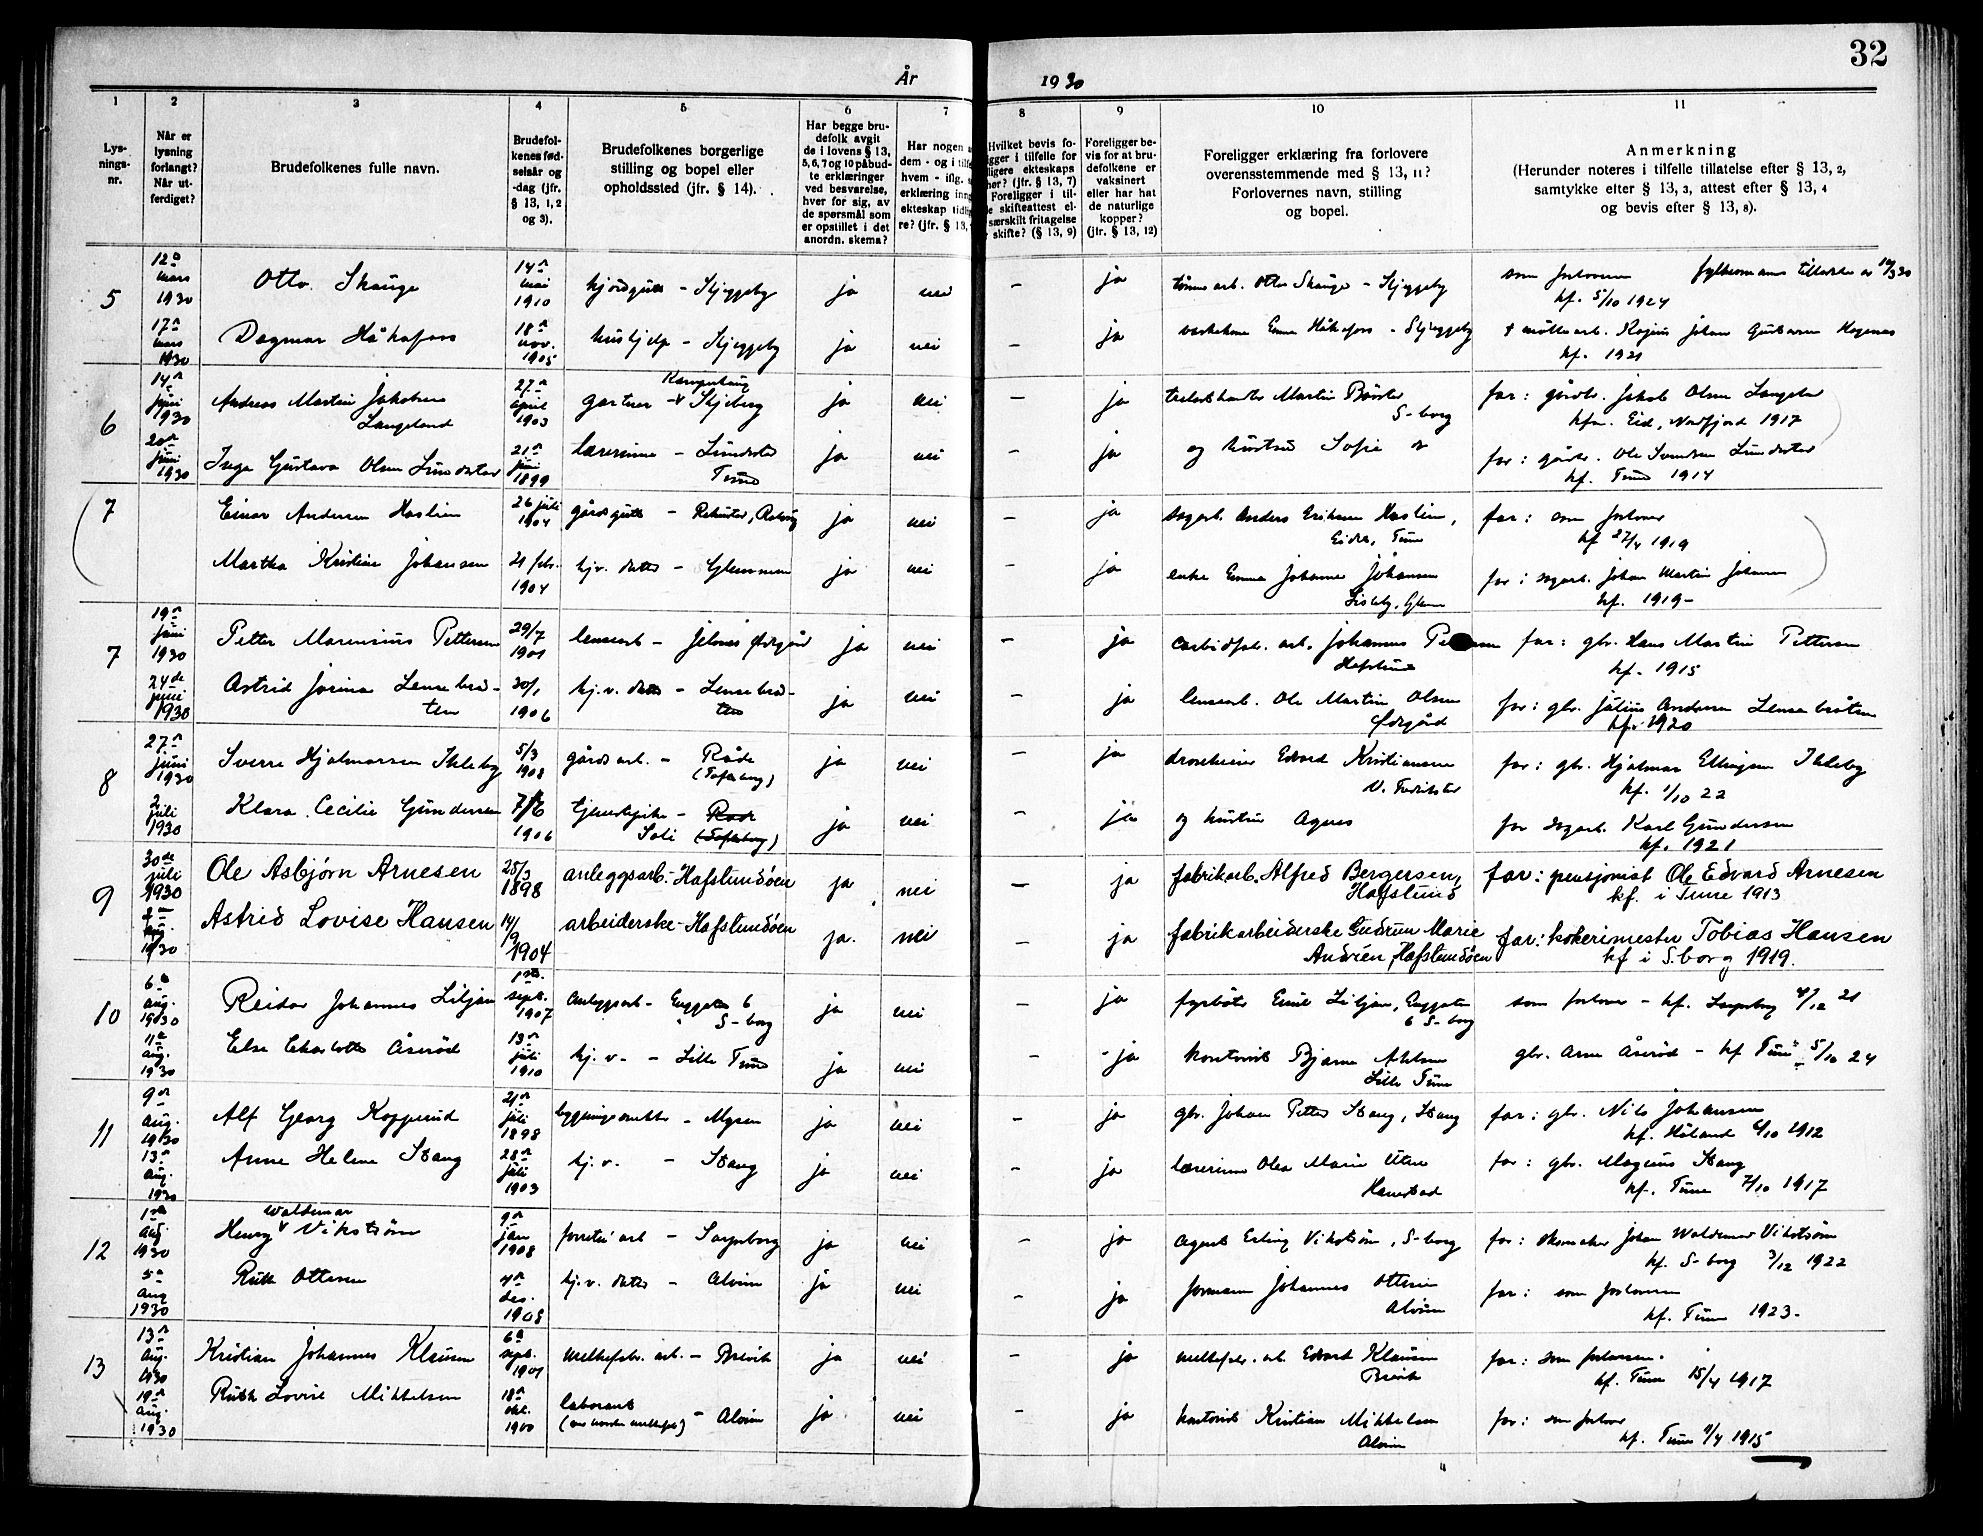 32
År 1930
1 2 3 4 5 6 7 8 9 10 11
Lys-
nings-
nr.
Når er
lysning
forlangt?
Når ut-
ferdiget?
Brudefolkenes fulle navn.
Brudefol-
kenes fød-
selsår og
-dag (jfr.
§ 13, 1,2
og 3).
Brudefolkenes borgerlige
stilling og bopel eller
opholdssted (jfr. § 14).
Har begge bru-
defolk avgit
de i lovens § 13,
5, 6, 7 og 10 påbud-
te erklæringer
ved besvarelse,
hver for sig, av
de spørsmål som
er opstillet i det
anordn. skema?
Har nogen a
dem - og i tilfe
hvem - iflg. s
erklæring inng
ekteskap tidlig
re? (jfr. § 13,
Hvilket bevis fo-
igger i tilfelle for
ligere ekteskaps
hør? (jfr. § 13, 7)
Foreligger i til-
e skifteattest el-
særskilt fritagelse
skifte? (§ 13, 9)
Foreligger be-
vis for at bru-
defolkene er
vaksinert
eller har hat
de naturlige
kopper?
(jfr. § 13, 12)
Foreligger erklæring fra forlovere
overensstemmende med § 13, 11?
Forlovernes navn, stilling
og bopel.
Anmerkning
(Herunder noteres i tilfelle tillatelse efter § 13, 2,
samtykke efter § 13, 3, attest efter § 13, 4
og bevis efter § 13, 8).
5
12te mars 1930
Otto Skauge
14de mai 1910
– Skjeggeby
ja nei – ja
Otto Skauge – Skjeggeby
som forloveren
kf. 5/10 1924
17de mars 1930
Dagmar Håkafoss
18de nov. 1905
hushjelp – Skjeggeby
ja nei – ja
Emma Håkafoss – Skjeggeby
Johan Gustavsen
kf. 1921
6
14de juni 1930
Andreas Martin Jakobsen
Langeland
27de april 1903
gartner – Skjeberg
ja nei – ja
Martin
S-borg
far: gårdbr. Jakob Olsen Langeland
kfm. Eid, Nordfjord 1917
20de juni 1930
Inga Gustava Olsen
21de juni 1899
lærerinne –
Tune
ja nei – ja
og hustru Sofie
far: gårdbr. Ole
kf. Tune 1914
7
Einar Andersen Haslien
26 juli 1904
gårdsgutt –
ja nei – ja
sagarb. Anders Eriksen Haslien,
Eidet, Tune
far: som forlover
kf 27/4 1919
Martha Kristine Johansen
21 febr. 1904
hj.v. datter – Glemmen
ja nei – ja
enke Emma Johanne Johansen
Lisleby, Glem
far: sagarb. Johan Martin Johansen
kf. 1919 –
7
19de juni 1930
Petter Marensius Pettersen
29/7 1901
lensearb –
ja nei – ja
carbidfabr. arb. Johannes
Hafslund
far: gbr. Hans Martin Pettersen
kf. 1915
24de juni 1930
Astrid Jorine Lensebrå-
ten
30/1 1906
hj.v. datter – Lensebrå-
ten
ja nei – ja
lensearb. Ole Martin Olsen
far: gbr. Julius Andersen Lensebråten
kf. 1920
8
27de juni 1930
Sverre Hjalmarsen Ihleby
5/3 1908
gårdsarb. – Råde
ja nei – ja
Edvard Kristiansen
far: gbr. Hjalmar Ellingsen Ihleby
kf. 1/10 22
2 juli 1930
Klara Cecilie Gundersen
7/6 1906
tjenestepike – Råde
Soli
ja nei – ja
og hustru Agnes
far sagarb. Karl Gundersen
kf. 1921
9
30de juli 1930
Ole Asbjørn Arnesen
25/3 1898
anleggsarb. – Hafslundsøen
ja nei – ja
fabrikarb. Alfred Bergersen,
Hafslund
far: pensjonist Ole Edvard Arnesen
kf. i Tune 1913
1930
Astrid Lovise Hansen
14/9 1904
arbeiderske – Hafslundsøen
ja. nei – ja
fabrikarbeiderske Gudrun Marie
Andrèen, Hafslundsøen
far: kokerimester Tobias Hansen
kf i S.borg 1919.
10
6te aug. 1930
Reidar Johannes Liljan
1ste sept. 1907
anleggsarb – Enggaten 6
S-borg
ja nei – ja
fyrbøter Emil Liljan, Enggaten
6 S-borg
som forlover – kf. 21
11te aug. 1930
Else Charlotte Åserød
13de juli 1910
hj.v. – Lille Tune
ja nei – ja
kontorist Bjarne
Lille Tune
gbr. Arne Åserød – kf Tune 5/10 24
11
9de aug. 1930
Alf Georg Kopperud
21de juli 1898
– Mysen
ja nei – ja
gbr. Johan Petter Stang, Stang
far: gbr. Nils Johansen
kf. Håland 6/10 1912
13de aug. 1930
Anne Helene Stang
28de juli 1903
hj.v. – Stang
ja nei – ja
lærerinne Olea Marie Utne
Hannestad
far: gbr. Magnus Stang
kf. Tune 7/10 1917
12
1ste aug 1930
Waldemar
Henry v Vikstrøm
9de jan 1908
– Sarpsborg
ja nei – ja
agent Erling Vikstrøm, S-borg
far: skomaker Johan Waldemar Vikstrøm
kf. S-borg 3/12 1922
5te aug 1930
Ruth Ottersen
4de des. 1908
hj.v. datter – Alvim
ja nei – ja
formann Johannes Ottersen
Alvim
far: som forloveren
kf. Tune 1923 –
13
13de aug. 1930
Kristian Johannes Klausen
6te sept. 1901
melkefabr. arb. – Brevik
ja nei – ja
melkefabr. arb. Edvard Klausen
Brevik
far: som forloveren.
kf. Tune 15/4 1917
19de aug. 1930
Ruth Lovise Mikkelsen
18de okt. 1900
laborant
– Alvim
ja nei – ja
kontorist Kristian Mikkelsen
Alvim
far: som forlover
kf. Tune 11/4 1915